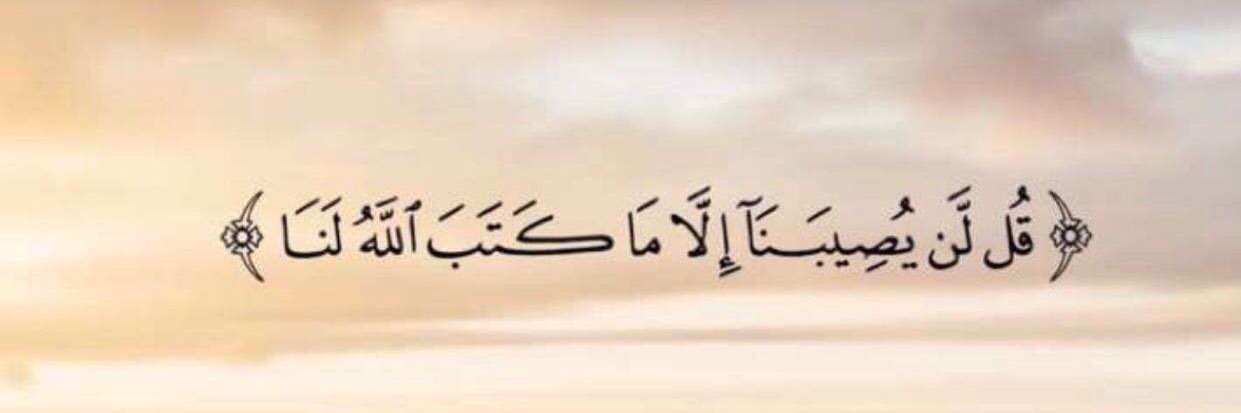 ﴿ قُل لَّن يُصِيبَنَآ إِلَّا مَا كَتَبَ ٱللَّهُ لَنَا ﴾